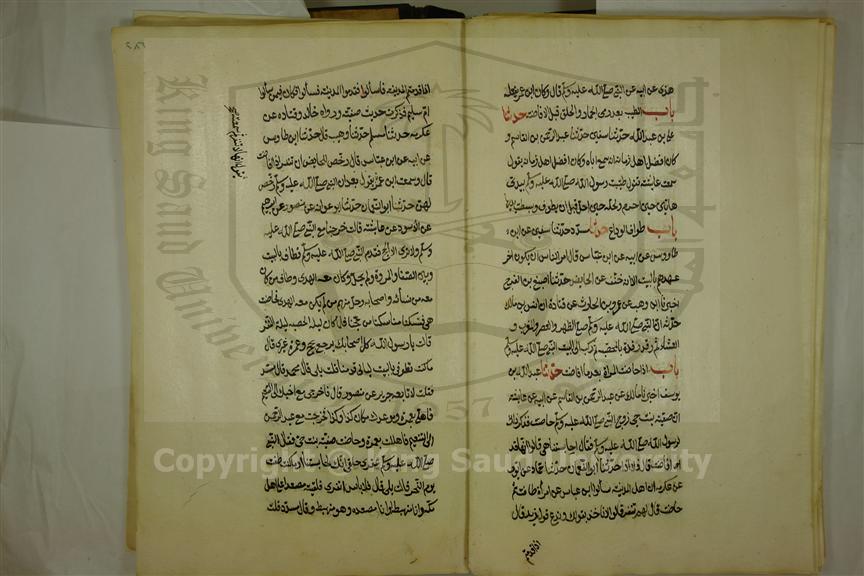 هذى عن ابيه عن النبي صلى الله عليه وسلم قال وكان ابن عمر يفعله
باب الطيب بعد رمي الجمار والحلق قبل الافاضة حدثنا
علي بن عبد الله حدثنا سفين حدثنا عبد الرحمن بن القاسم و
كان افضل اهل زمانه انه سمع اباه وكان افضل اهل زمانه يقول
سمعت عايشة تقول طيبت رسول الله صلى الله عليه وسلم بيدي
هاتين حين احرم ولحله حين احل قبل ان يطوف وبسطت يديها
باب طواف الوداع حدثنا مسدد حدثنا سفين عن ابن
طاووس عن ابيه عن ابن عباس قال امر الناس ان يكون اخر
عهدهم بالبيت الا انه خفف عن الحايض حدثنا اصبغ بن الفرج
اخبرنا ابن وهب عن عمرو بن الحارث عن قتادة ان انس بن مالك
حدثه ان النبي صلى الله عليه وسلم صلى الظهر والعصر والمغرب و
العشاء ثم رقد رقدة بالمحصب ثم ركب الى البيت النبي صلى الله عليه وسلم
باب اذا حاضت المراة بعد ما افاضت حدثنا عبد الله بن
يوسف اخبرنا مالك عن عبد الرحمن بن القاسم عن ابيه عن عايشة
ان صفية بنت حي زوج النبي صلى الله عليه وسلم حاضت فذكرت ذلك
لرسول الله صلى الله عليه وسلم فقال احابستنا هي قالوا انها قد
افاضت قال فلا اذا حدثنا ابو النعمان حدثنا حماد عن ايوب
عن عكرمة ان اهل المدينة سالوا ابن عباس عن امراة طافت ثم
حاضت قال لهم تنفر قالوا لا ناخذ بقولك وندع قول زيد قال
اذا قدمتم
٢٨٦
اذا قدمتم المدينة فاسالوا فقدموا المدينة فسالوا فكان فيمن سالوا
ام سليم فذكرت حديث صفية ورواه خالد وقتادة عن
عكرمة حدثنا مسلم حدثنا وهيب قال حدثنا ابن طاوس
عن ابيه عن ابن عباس قال رخص للحايض ان تنفر اذا افاضت
قال وسمعت ابن عمر يقول بعد ان النبي صلى الله عليه وسلم رخص
لهن حدثنا ابو النعمان حدثنا ابو عوانة عن منصور عن ابرهيم
عن الاسود عن عايشة قالت خرجنا مع النبي صلى الله عليه
وسلم ولا نرى الا الحج فقدم النبي صلى الله عليه وسلم فطاف بالبيت
وبين الصفا والمروة ولم يحل وكان معه الهدي وطاف من كان
معه من نسائه واصحابه وحل منهم من لم يكن معه الهدي فحاضت
هي فنسكنا مناسكنا من حجنا فلما كان ليلة الحصبة ليلة النفر
قالت يا رسول الله كل اصحابك يرجع بحج وعمرة غيري قال
ما كنت تطوفي بالبيت ليالي قدمنا قلت بلى قال
فاخرجي مع اخيك الى التنعيم
فاهلي بعمرة وموعدك مكان كذا وكذا فخرجت مع عبد الرحمن
الى التنعيم فاهللت بعمرة وحاضت صفية بنت حي فقال النبي
صلى الله عليه وسلم عقرى حلقى انك لحابستنا اما كنت طفت
يوم النحر قالت بلى قال فلا باس انفري فلقيته مصعدا على اهل
مكة وانا منهبطة او انا مصعدة وهو منهبط وقال مسدد قلت
Copyright © King Saud University
King Saud University
1957